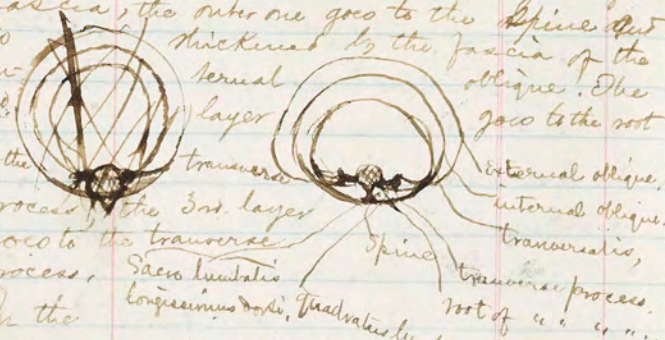 fascia, the outer one goes to the spine and
thickened by the fascia of the
ternal oblique. The
layer goes to the root
the transverse
process, the 3rd. layer
goes to the tranverse
process,
In the
External oblique,
internal oblique.
tranversalis,
Spine
tranverse process.
root of " " " ".
Sacro lumbalis
longissimus dorsi, Quadratus lu